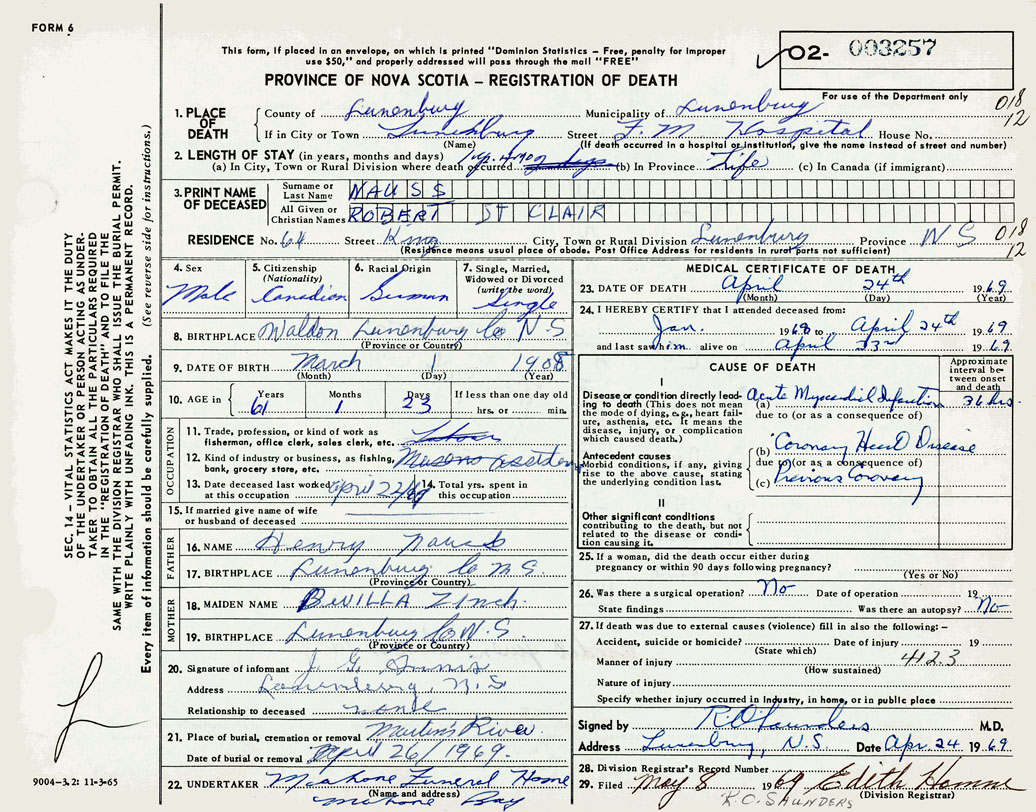 FORM 6
This form, if placed in an envelope, on which is printed "Dominion Statistics – Free, penalty for improper
use $50," and properly addressed will pass through the mail "FREE"
PROVINCE OF NOVA SCOTIA – REGISTRATION OF DEATH
O2- 003257
For use of the Department only
018
12
1. PLACE OF DEATH
County of Lunenburg Municipality of Lunenburg
If in City or Town Lunenburg Street F. M. Hospital House No.
(Name) (If death occurred in a hospital or institution, give the name instead of street and number)
2. LENGTH OF STAY (in years, months and days)
(a) In City, Town or Rural Division where death occurred (b) In Province Life (c) In Canada (if immigrant)
3. PRINT NAME OF DECEASED
Surname or Last Name NAUSS
All Given or Christian Names ROBERT ST CLAIR
RESIDENCE No. 64 Street King City, Town or Rural Division Lunenburg Province N S
018
12
(Residence means usual place of abode. Post Office Address for residents in rural parts not sufficient)
4. Sex Male
5. Citizenship (Nationality) Canadian
6. Racial Origin German
7. Single, Married, Widowed or Divorced (write the word) Single
8. BIRTHPLACE Waldon Lunenburg Co N S
(Province or Country)
9. DATE OF BIRTH March 1 1908
(Month) (Day) (Year)
10. AGE in Years 61 Months 1 Days 23 If less than one day old hrs. or min.
OCCUPATION
11. Trade, profession, or kind of work as fisherman, office clerk, sales clerk, etc. Labour
12. Kind of industry or business, as fishing, bank, grocery store, etc. Masons
13. Date deceased last worked at this occupation April 22/69
14. Total yrs. spent in this occupation
15. If married give name of wife or husband of deceased
FATHER
16. NAME Henry Nauss
17. BIRTHPLACE Lunenburg Co N.S.
(Province or Country)
MOTHER
18. MAIDEN NAME BEVILLA ZINCH.
19. BIRTHPLACE Lunenburg Co N.S.
(Province or Country)
20. Signature of informant J. G.
Address Lunenburg, N.S
Relationship to deceased
21. Place of burial, cremation or removal Martin's River
Date of burial or removal April 26/1969.
22. UNDERTAKER Mahone Funeral Home
(Name and address)
Mahone Bay
MEDICAL CERTIFICATE OF DEATH
23. DATE OF DEATH April 24th 1969
(Month) (Day) (Year)
24. I HEREBY CERTIFY that I attended deceased from:
Jan. 1968 to April 24th 1969
and last saw him alive on April 23rd 1969.
CAUSE OF DEATH
Approximate interval between onset and death
I
Disease or condition directly leading to death (This does not mean the mode of dying, e.g., heart failure, asthenia, etc. It means the disease, injury, or complication which caused death.)
(a) Acute Myocardial Infarction 36 hrs.
due to (or as a consequence of)
Antecedent causes
Morbid conditions, if any, giving rise to the above cause, stating the underlying condition last.
(b) Coronary Heart Disease
due to (or as a consequence of)
(c) Previous Coronary
II
Other significant conditions
contributing to the death, but not related to the disease or condition causing it.
25. If a woman, did the death occur either during
pregnancy or within 90 days following pregnancy?
(Yes or No)
26. Was there a surgical operation? No Date of operation 19
State findings Was there an autopsy? No
27. If death was due to external causes (violence) fill in also the following: –
Accident, suicide or homicide? Date of injury 19
(State which)
Manner of injury 412.3
(How sustained)
Nature of injury
Specify whether injury occurred in industry, in home, or in public place
Signed by R.O. Saunders M.D.
Address Lunenburg, N.S. Date Apr. 24 1969.
28. Division Registrar's Record Number
29. Filed May 8 1969 Edith
(Division Registrar)
R.O. SAUNDERS
SEC. 14 – VITAL STATISTICS ACT MAKES IT THE DUTY
OF THE UNDERTAKER OR PERSON ACTING AS UNDER-
TAKER TO OBTAIN ALL THE PARTICULARS REQUIRED
IN THE "REGISTRATION OF DEATH" AND TO FILE THE
SAME WITH THE DIVISION REGISTRAR WHO SHALL ISSUE THE BURIAL PERMIT.
WRITE PLAINLY WITH UNFADING INK. THIS IS A PERMANENT RECORD.
Every item of information should be carefully supplied. (See reverse side for instructions.)
9004–3.2: 11-3-65